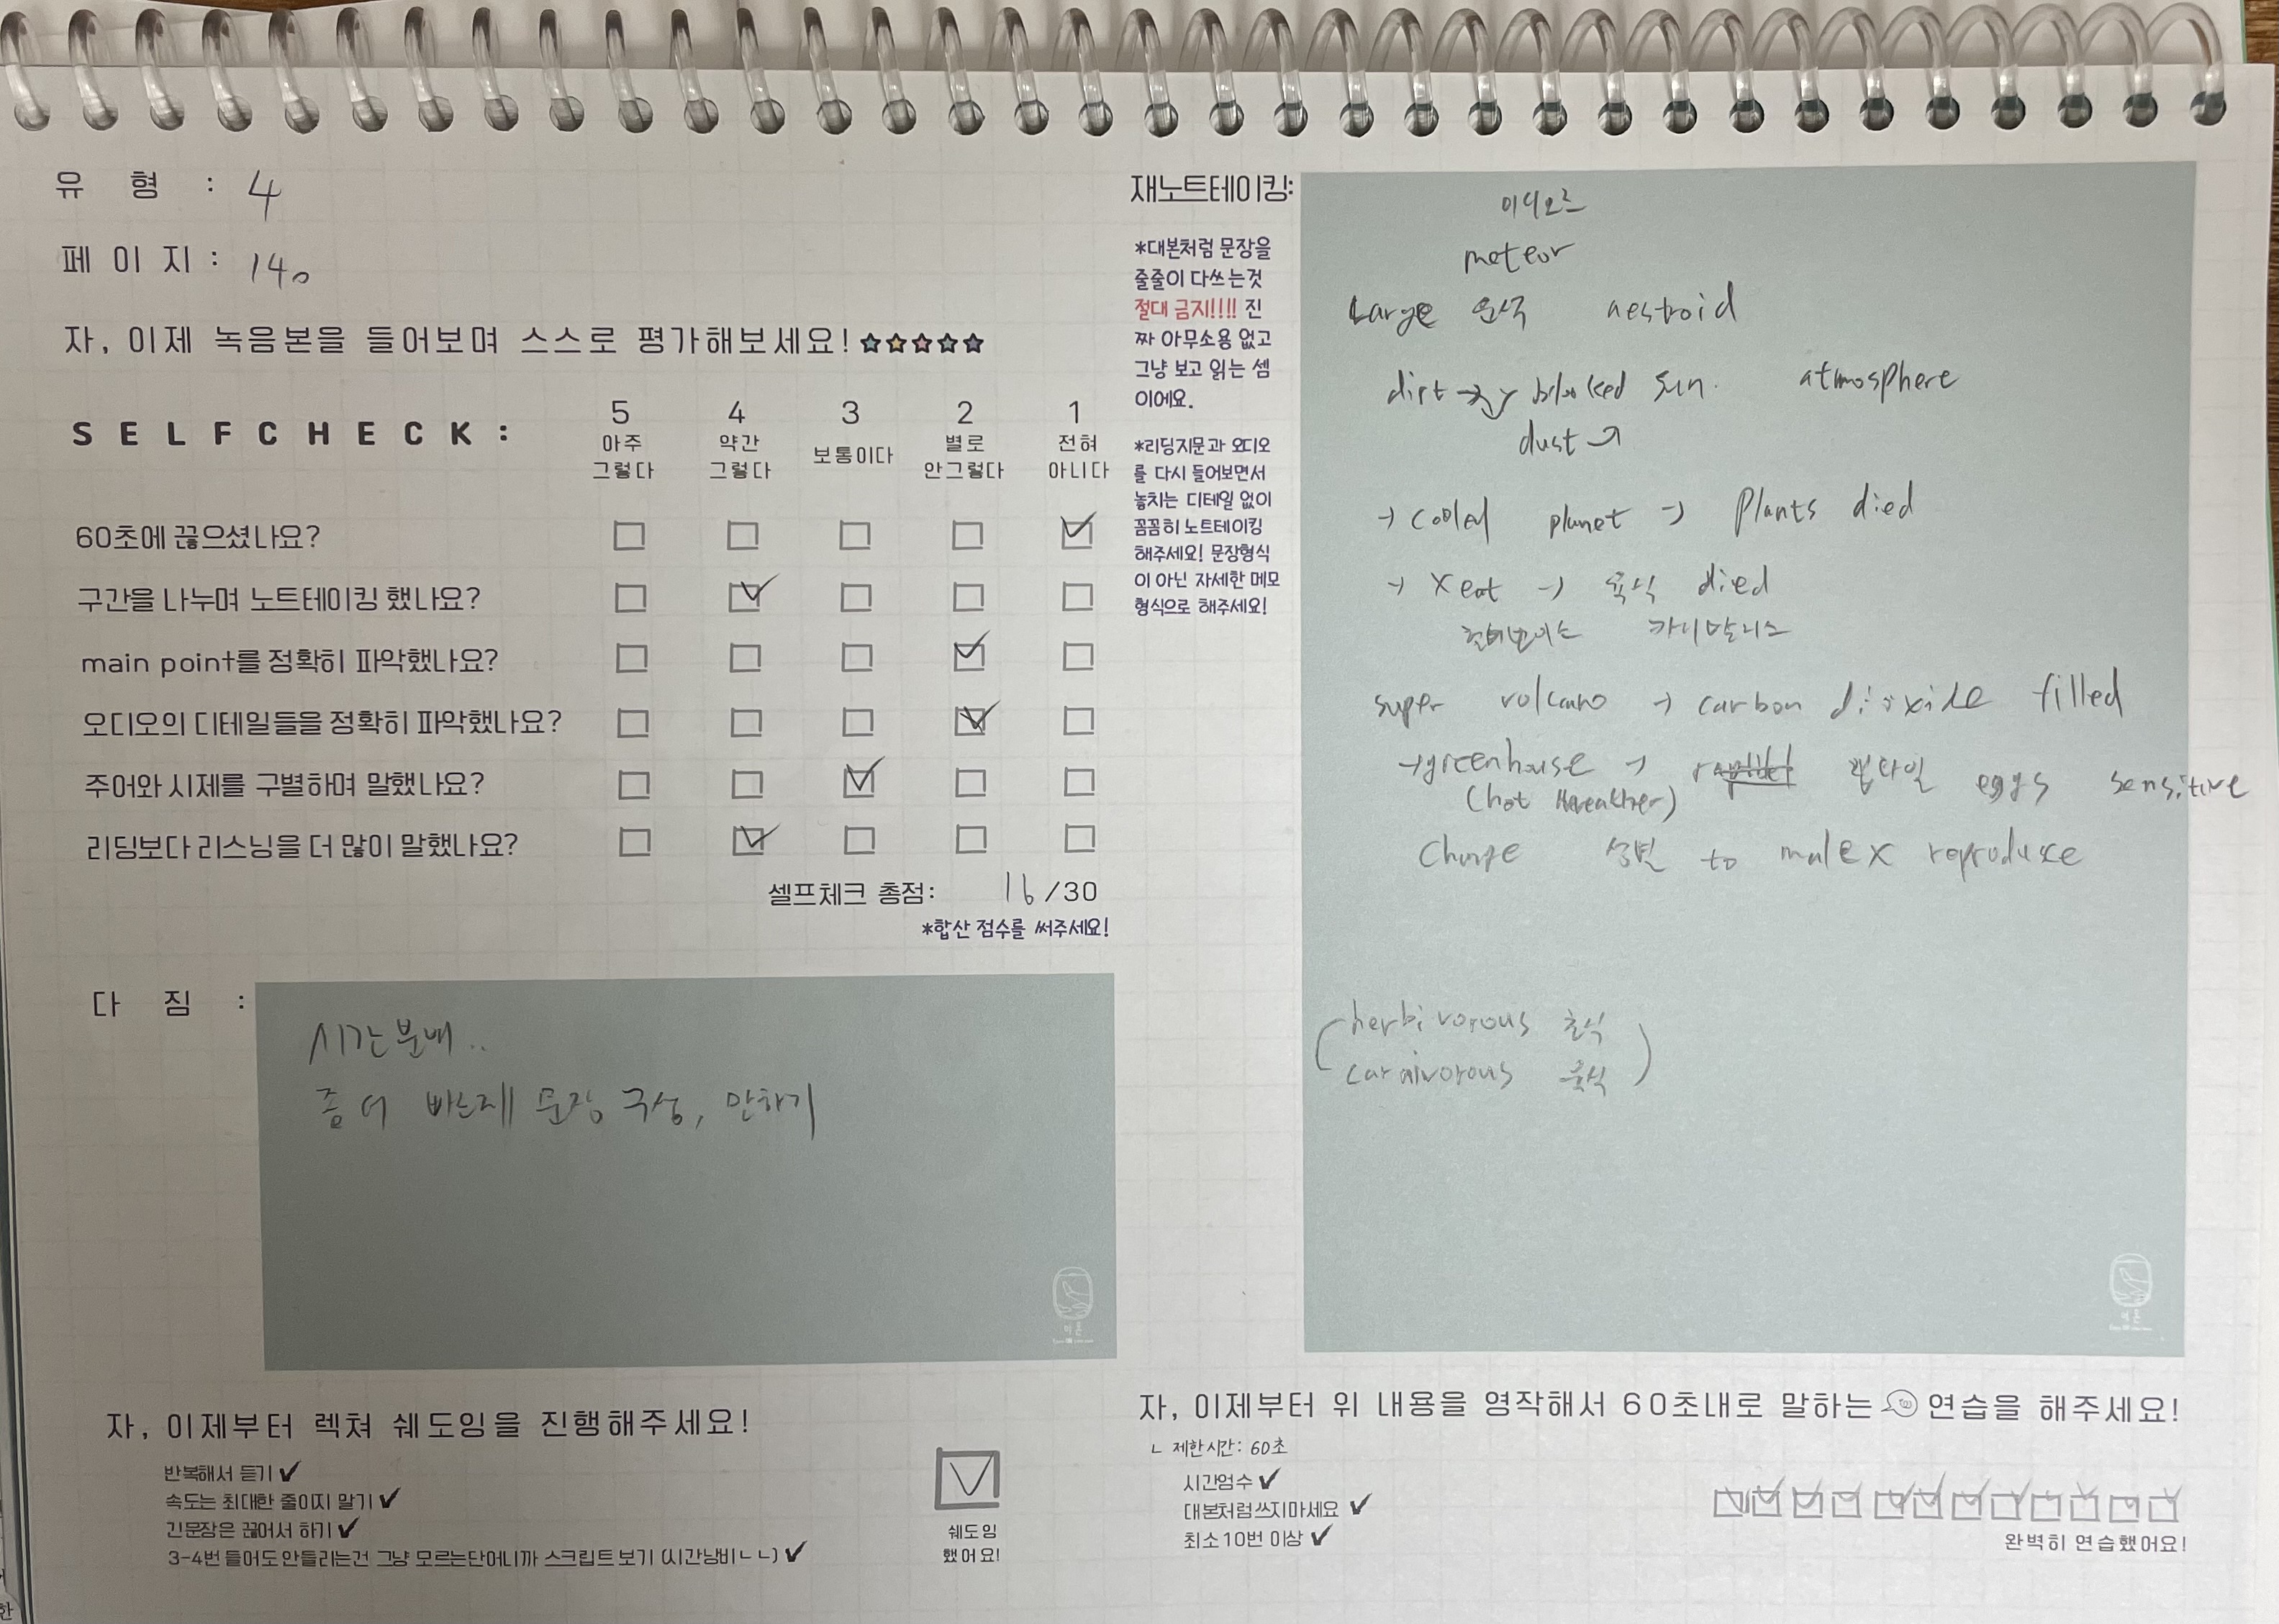 유 형 : 4
페 이 지 : 140
자, 이제 녹음본을 들어보며 스스로 평가해보세요!
SELFCHECK :
5 4 3 2 1
아주 약간 보통이다 별로 전혀
그렇다 그렇다 안그렇다 아니다
60초에 끊으셨나요?
구간을 나누며 노트테이킹 했나요?
main point를 정확히 파악했나요?
오디오의 디테일들을 정확히 파악했나요?
주어와 시제를 구별하며 말했나요?
리딩보다 리스닝을 더 많이 말했나요?
셀프체크 총점: 16 /30
*합산 점수를 써주세요!
다 짐 :
시간분배..
좀 더 빠르게 문장 구성, 말하기
자, 이제부터 렉쳐 쉐도잉을 진행해주세요!
반복해서 듣기 ✔
속도는 최대한 줄이지 말기 ✔
긴문장은 끊어서 하기 ✔
3-4번 들어도 안들리는건 그냥 모르는단어니까 스크립트 보기 (시간낭비ㄴㄴ) ✔
쉐도잉
했어요!
재노트테이킹:
*대본처럼 문장을
줄줄이 다쓰는것
절대 금지!!!! 진
짜 아무소용 없고
그냥 보고 읽는 셈
이에요.
*리딩지문과 오디오
를 다시 들어보면서
놓치는 디테일 없이
꼼꼼히 노트테이킹
해주세요! 문장형식
이 아닌 자세한 메모
형식으로 해주세요!
미디오르
meteor
Large 운석 aestroid
dirt blocked sun. atmosphere
dust
→ cooled planet → Plants died
→ x eat → 육식 died
카니발니스
super volcano → carbon dioxide filled
→ greenhouse → 랩타일 eggs sensitive
(hot
Change 성별 to male x reproduce
herbivorous 초식
carnivorous 육식
자, 이제부터 위 내용을 영작해서 60초내로 말하는 연습을 해주세요!
ㄴ 제한시간: 60초
시간엄수 ✔
대본처럼쓰지마세요 ✔
최소10번 이상 ✔
완벽히 연습했어요!